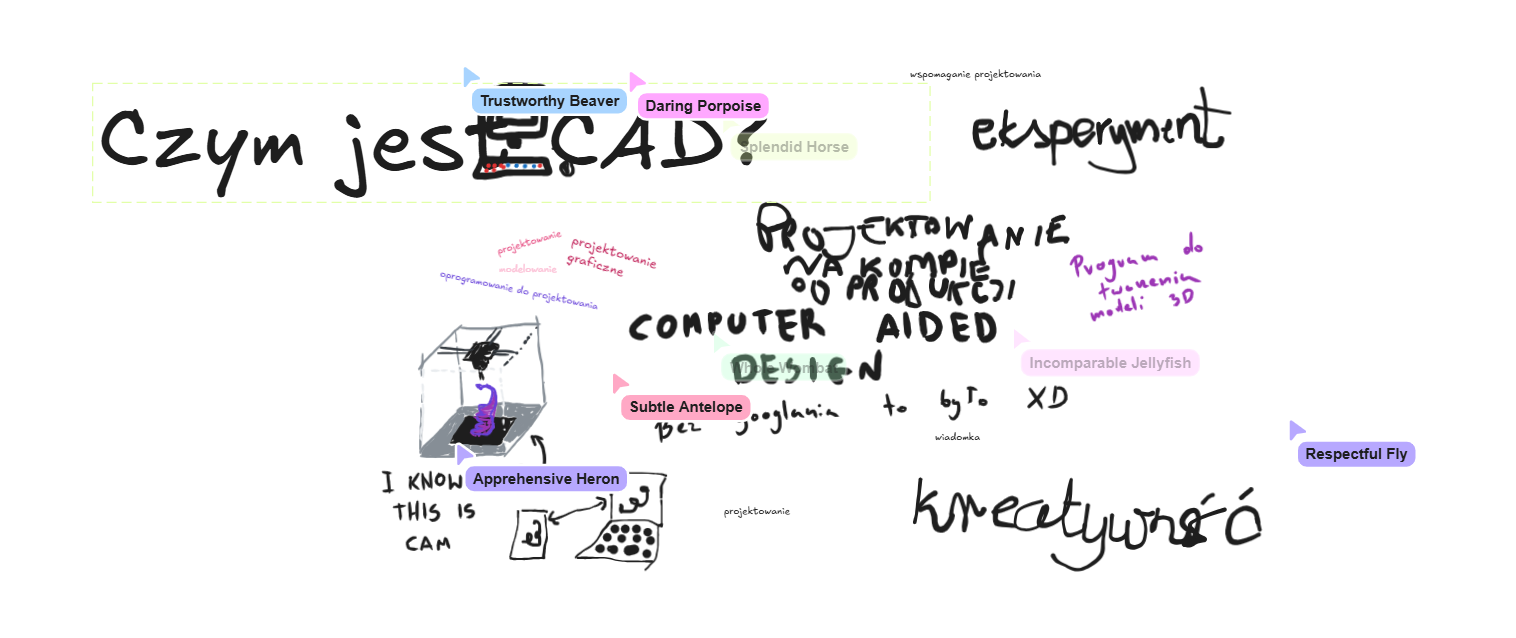 wspomaganie projektowania
Trustworthy Beaver
Daring Porpoise
Czym jest CAD?
Splendid Horse
eksperyment
PROJEKTOWANIE
NA KOMPIE
DO PRODUKCJI
projektowanie
projektowanie
graficzne
modelowanie
oprogramowanie do projektowania
Program do
tworzenia
modeli 3D
COMPUTER AIDED
DESIGN
Whole Wombat
Incomparable Jellyfish
Subtle Antelope
Bez googlania to było XD
wiadomka
Respectful Fly
Apprehensive Heron
I KNOW
THIS IS
CAM
projektowanie
kreatywność